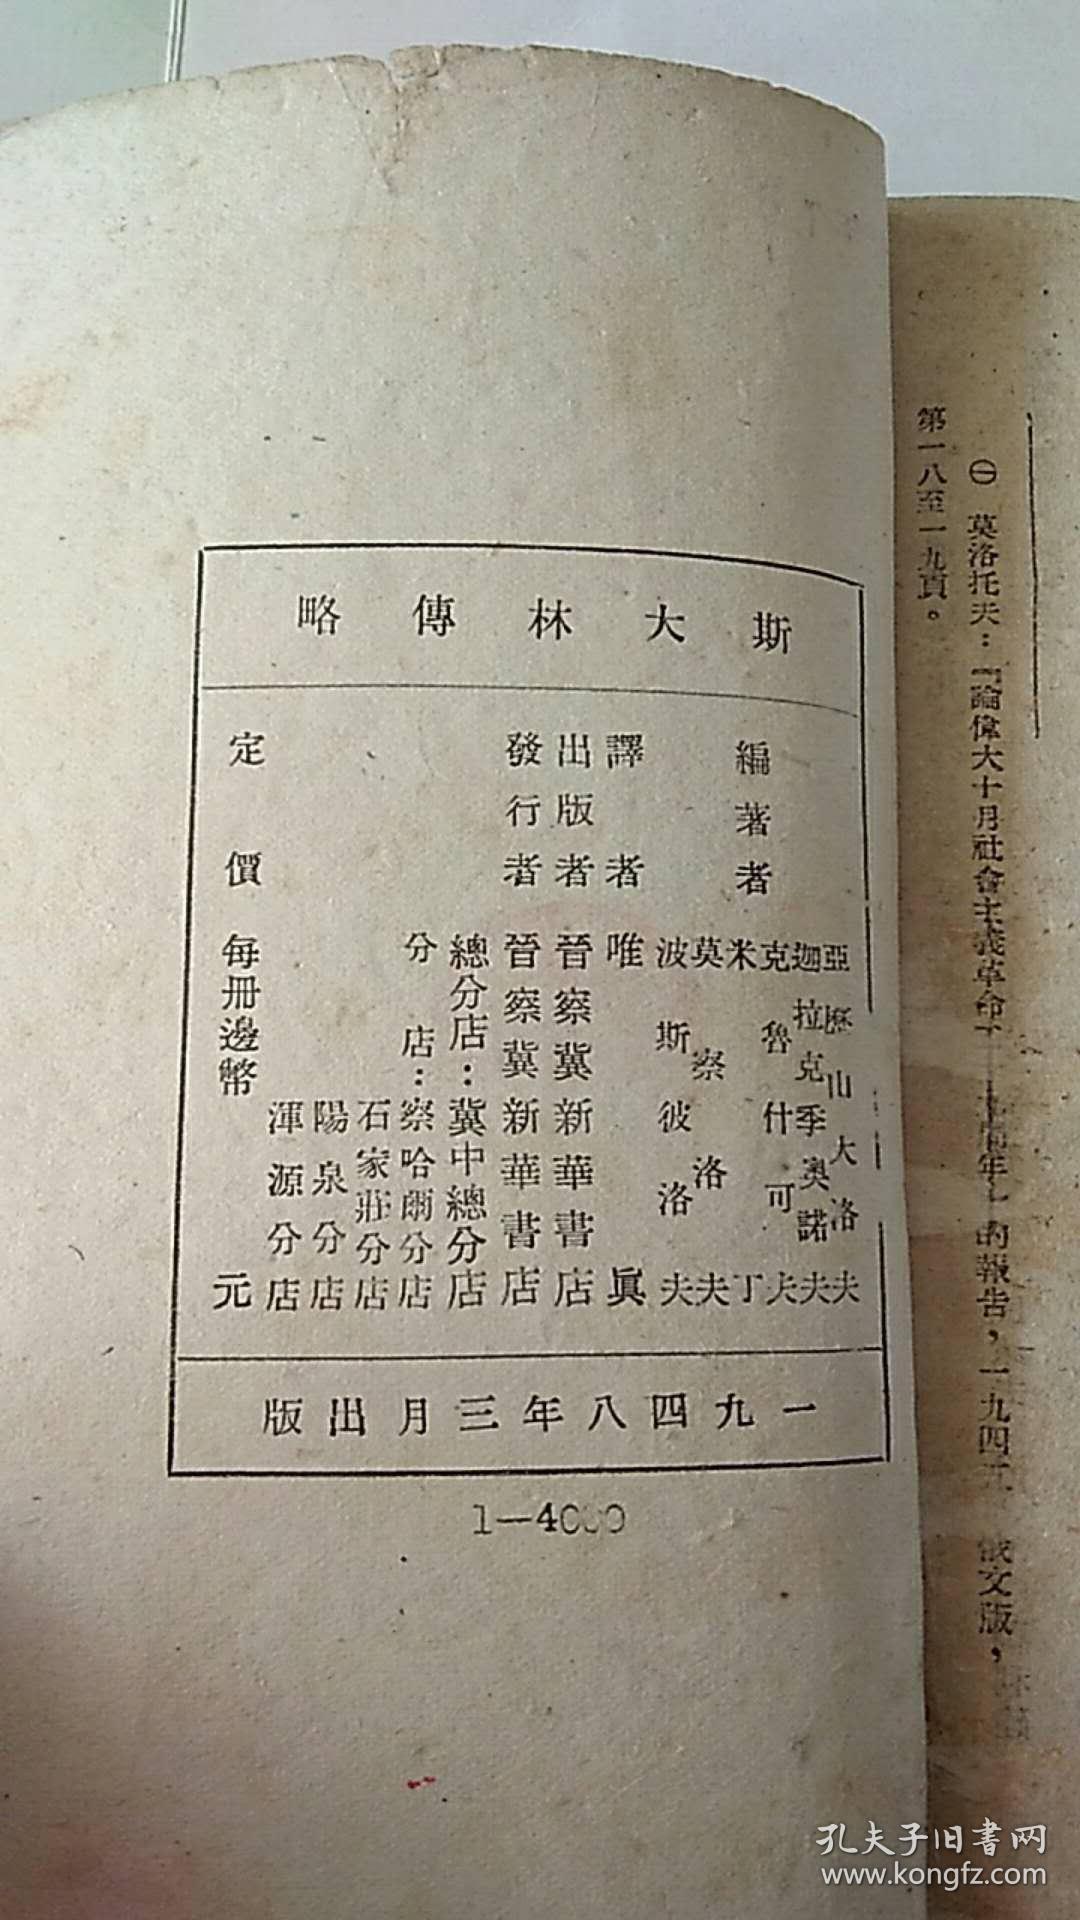 ㊀ 莫洛托夫：『論偉大十月社會主義革命 的報告，一九四 俄文版，
第一八至一九頁。
斯大林傳略
編著者
亞歷山大洛夫
迦拉克季奧諾夫
克魯什可夫
米丁
莫察洛夫
波斯彼洛夫
譯者 唯眞
出版者 晉察冀新華書店
發行者 晉察冀新華書店
總分店：冀中總分店
分店：察哈爾分店
石家莊分店
陽泉分店
渾源分店
定價 每冊邊幣 元
一九四八年三月出版
1—4000
孔夫子旧書网
www.kongfz.com